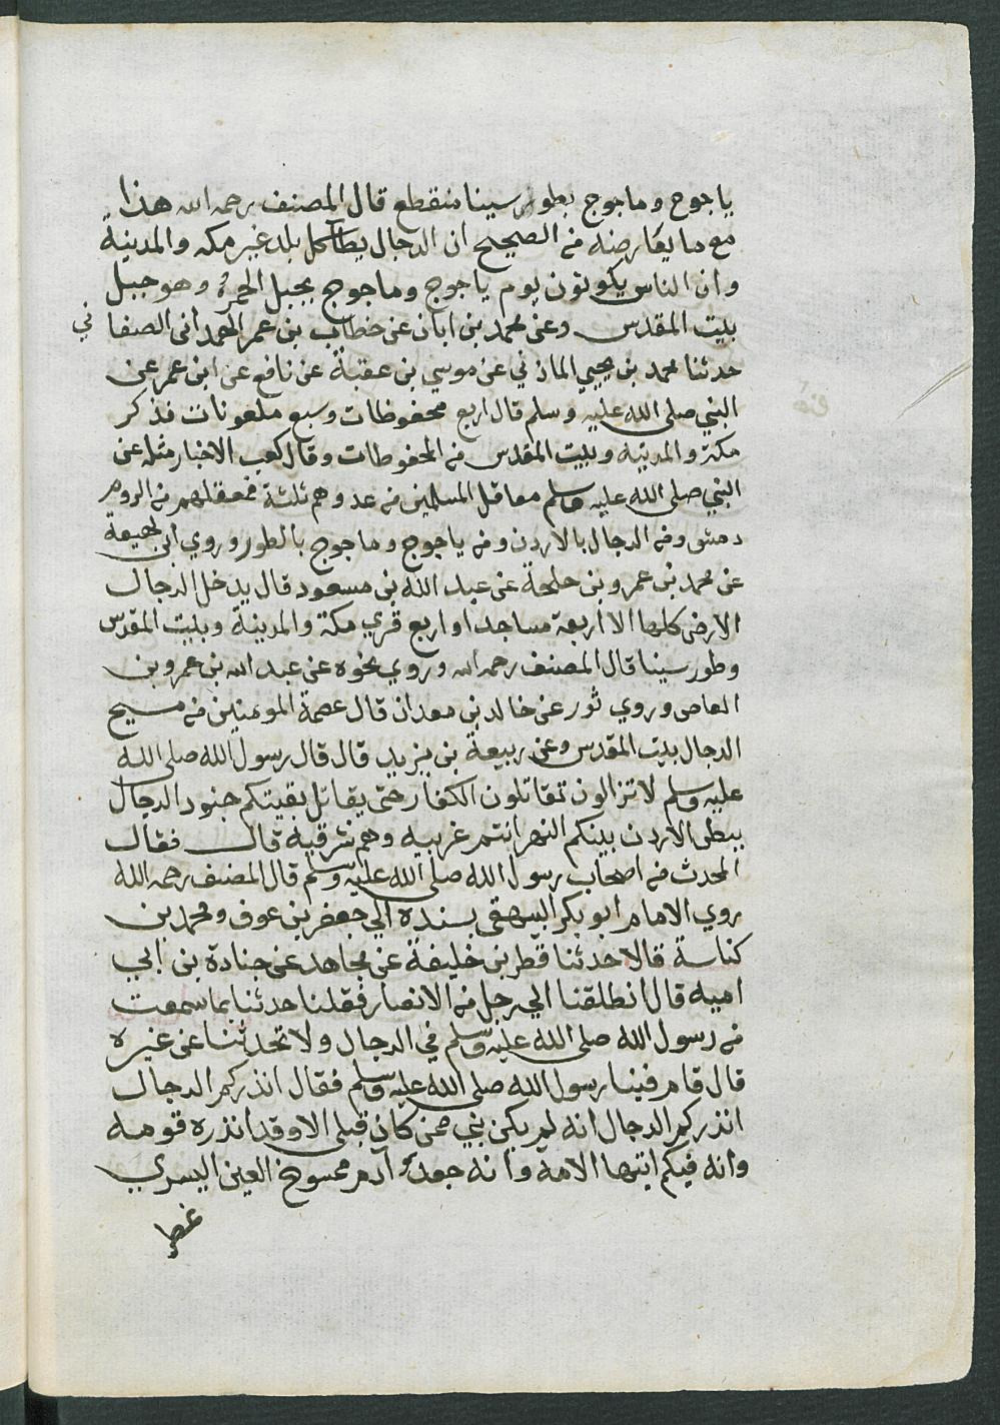 ياجوج وماجوج بطور سينا منقطع قال المصنف رحمه الله هذا
مع ما يعارضه من الصحيح ان الدجال يطأ كل بلد غير مكه والمدينة
وان الناس يكونون يوم ياجوج وماجوج بجبل الخمر وهو جبل
بيت المقدس وعن محمد بن ابان عن خطاب بن عمر الهمداني الصفا
في
حدثنا محمد بن يحيي المازني عن موسي بن عقبة عن نافع عن ابن عمر عن
النبي صلى الله عليه وسلم قال اربع محفوظات وسبع ملعونات فذكر
مكة والمدينه وبيت المقدس من المحفوظات وقال كعب الاخبار مثله عن
النبي صلى الله عليه وسلم معاقل المسلمين من عدوهم ثلثة فمعقلهم من الروم
دمشق ومن الدجال بالاردن ومن ياجوج وماجوج بالطور وروي ابن لهيعة
عن محمد بن عمرو بن حلحة عن عبد الله بن مسعود قال يدخل الدجال
الارض كلها الا اربعة مساجد او اربع قري مكة والمدينة وبيت المقدس
وطور سينا قال المصنف رحمه الله وروي نحوه عن عبد الله بن عمرو بن
العاص وروي ثور عن خالد بن معدان قال عصمة المومنين من مسيح
الدجال بيت المقدس وعن ربيعة بن يزيد قال قال رسول الله صلى الله
عليه وسلم لا تزالون تقاتلون الكفار حتى يقاتل بقيتكم جنود الدجال
ببطن الاردن بينكم النهر انتم غربيه وهم شرقيه قال فقال
المحدث من اصحاب رسول الله صلى الله عليه وسلم قال المصنف رحمه الله
روي الامام ابو بكر البيهقي بسنده الي جعفر بن عوف ومحمد بن
كناسة قالا حدثنا قطر بن خليفة عن مجاهد عن جنادة بن ابي
اميه قال انطلقنا الي رجل من الانصار فقلنا حدثنا بما سمعت
من رسول الله صلى الله عليه وسلم في الدجال ولا تحدثنا عن غيره
قال قام فينا رسول الله صلى الله عليه وسلم فقال انذركم الدجال
انذركم الدجال انه لم يكن نبي ممن كان قبلي الا وقد انذره قومه
وانه فيكم ايتها الامة وانه جعد آدم ممسوخ العين اليسري